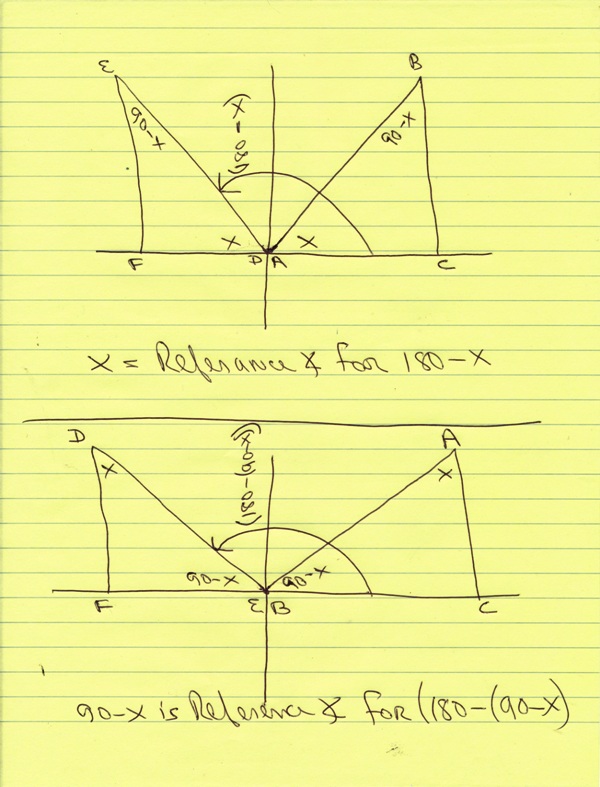 E
B
90-X
(180-X)
90-X
X
X
F
D
A
C
X = Referance ∡ for 180-X
D
A
X
(180-(90-X)
X
90-X
90-X
F
E
B
C
90-X is Reference ∡ for (180-(90-X)